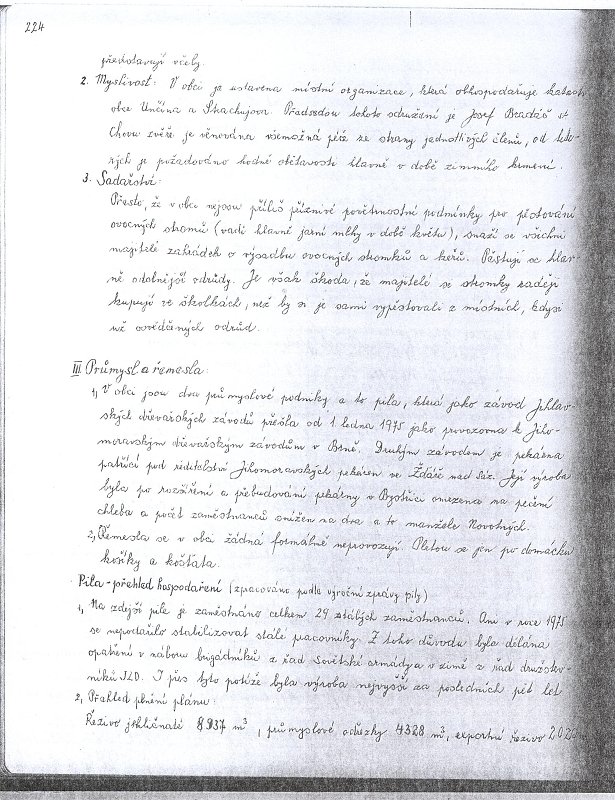 224
představují včely.
2. Myslivost: V obci je ustavena místní organizace, která obhospodařuje katastr
obce Unčína a Strachujova. Předsedou tohoto sdružení je Josef Bradáč st.
Chovu zvěře je věnována všemožná péče ze strany jednotlivých členů, od kte-
rých je požadováno hodně obětavosti hlavně v době zimního krmení.
3. Sadařství:
Přesto, že v obci nejsou příliš příznivé povětrnostní podmínky pro pěstování
ovocných stromů (vadí hlavně jarní mlhy v době květu), snaží se všichni
majitelé zahrádek o výsadbu ovocných stromků a keřů. Pěstují se hlav-
ně odolnější odrůdy. Je však škoda, že majitelé si stromky raději
kupují ve školkách, než by si je sami vypěstovali z místních, kdysi
už osvědčených odrůd.
III Průmysl a řemesla:
1, V obci jsou dva průmyslové podniky a to pila, která jako závod Jihlav-
ských dřevařských závodů přešla od 1 ledna 1975 jako provozovna k Jiho-
moravským dřevařským závodům v Brně. Druhým závodem je pekárna
patřící pod ředitelství Jihomoravských pekáren ve Žďáře nad Sáz. Její výroba
byla po rozšíření a přebudování pekárny v Bystřici omezena na pečení
chleba a počet zaměstnanců snížen na dva a to manžele Novotných.
2, Řemesla se v obci žádná formálně neprovozují. Pletou se jen po domácku
košíky a košťata.
Pila - přehled hospodaření (zpracováno podle výroční zprávy pily)
1, Na zdejší pile je zaměstnáno celkem 29 stálých zaměstnanců. Ani v roce 1975
se nepodařilo stabilizovat stálé pracovníky. Z toho důvodu byla dělána
opatření v náboru brigádníků z řad Sovětské armády a v zimě z řad družstev-
níků JZD. I přes tyto potíže byla výroba nejvyšší za posledních pět let
2, Přehled plnění plánu:
Řezivo jehličnaté 8937 m³, průmyslové odřezky 4328 m³, exportní řezivo